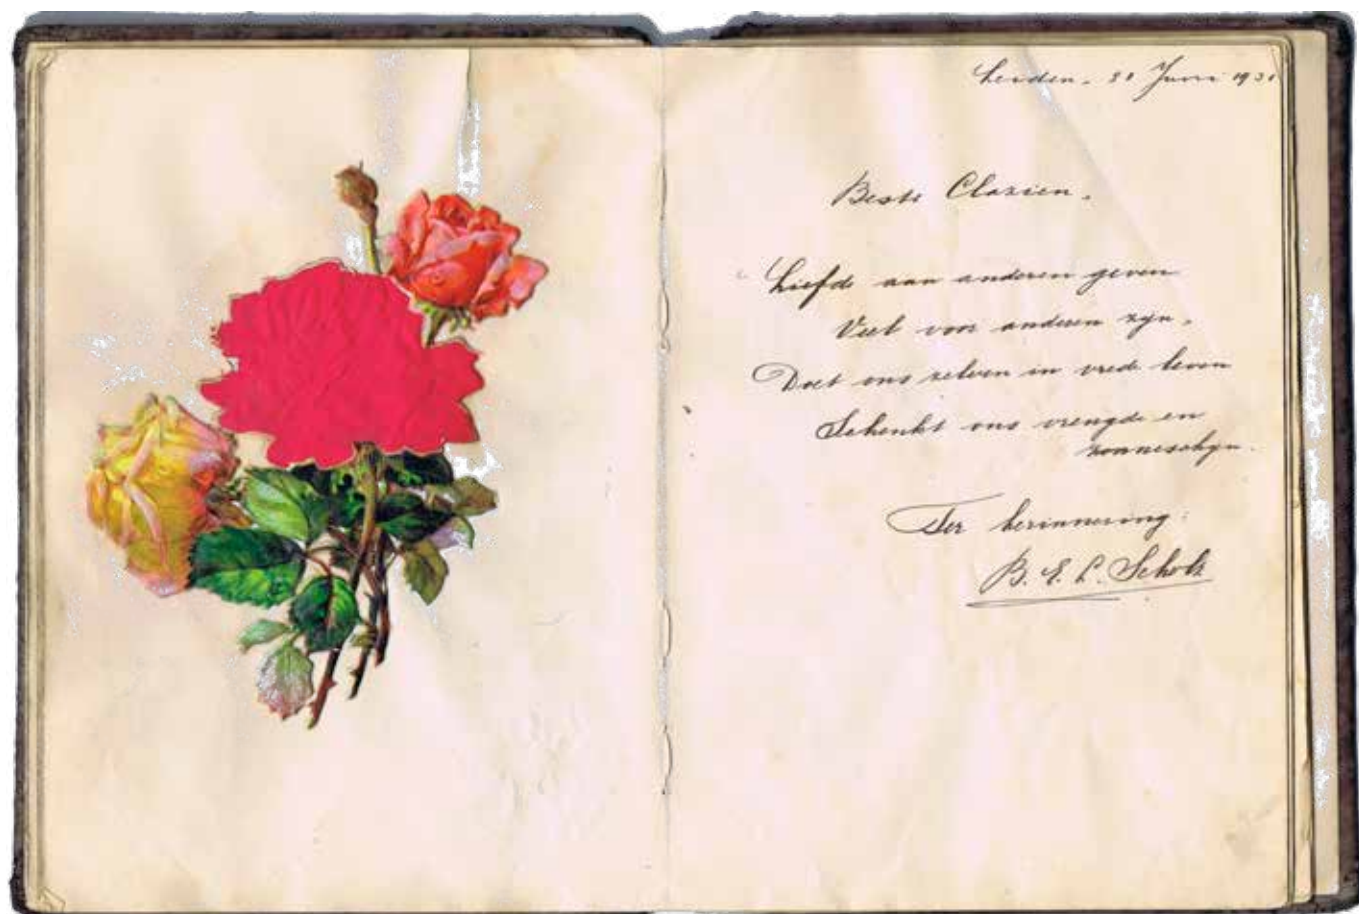 Leiden. 30 Juni 193
Beste Clasien.
Liefde aan anderen geven
Veel voor anderen zijn,
Doet ons zelven in vrede leven
Schenkt ons vreugde en
zonneschijn.
Ter herinnering:
B. E. L. Scholz